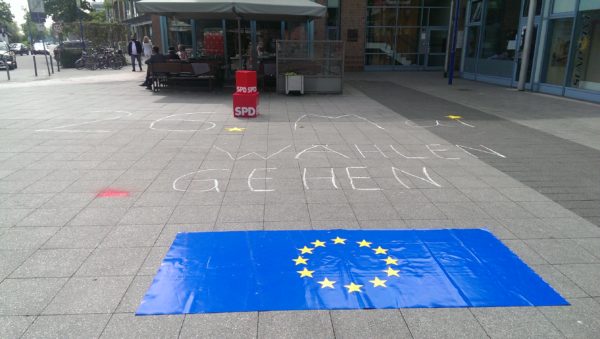 SPD SPD
SPD
26. MAI
WÄHLEN
GEHEN